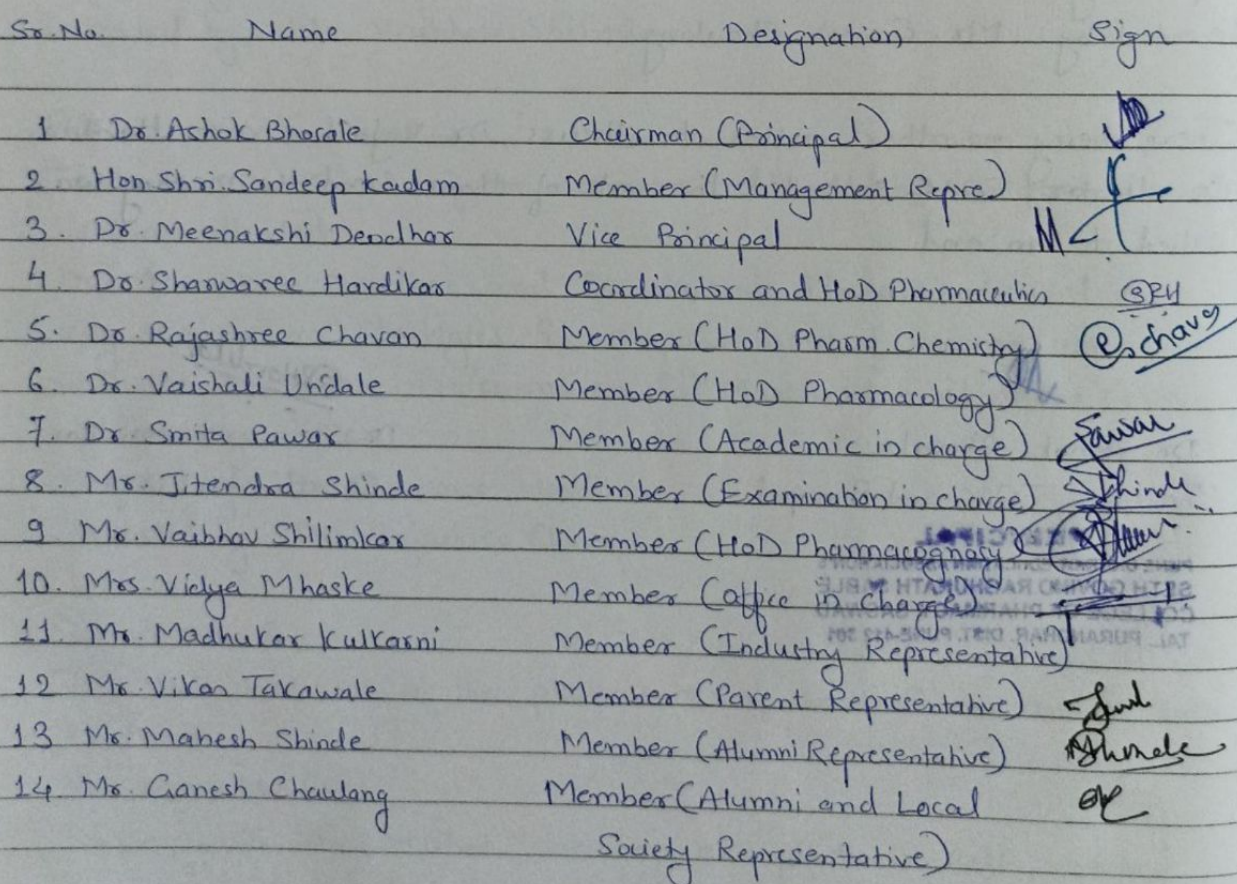 Sr. No. Name Designation Sign
1 Dr. Ashok Bhosale Chairman (Principal)
2 Hon Shri. Sandeep Kadam Member (Management Repre)
3. Dr. Meenakshi Deodhar Vice Principal
4. Dr. Sharwaree Hardikar Coordinator and HoD Pharmaceutics SRH
5. Dr. Rajashree Chavan Member (HoD Pharm. Chemistry) R. Chavan
6. Dr. Vaishali Undale Member (HoD Pharmacology)
7. Dr Smita Pawar Member (Academic in charge) Pawar
8. Mr. Jitendra Shinde Member (Examination in charge) Shinde
9 Mr. Vaibhav Shilimkar Member (HoD Pharmacognosy)
10. Mrs. Vidya Mhaske Member (office in Charge)
11. Mr. Madhukar Kulkarni Member (Industry Representative)
12 Mr. Vikas Takawale Member (Parent Representative)
13 Mr. Mahesh Shinde Member (Alumni Representative) Shinde
14 Mr. Ganesh Chaulang Member (Alumni and Local
Society Representative)